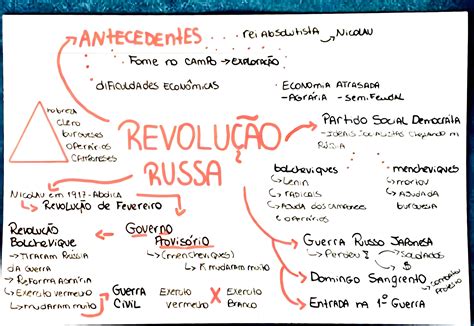 ANTECEDENTES
rei absolutista → Nicolau
Fome no campo → exploração
dificuldades econômicas
Economia atrasada
- Agrária - Semifeudal
nobreza
clero
burgueses
operários
camponeses
REVOLUÇÃO
RUSSA
Partido Social Democrata
- Ideais socialistas chegando na
Rússia
bolcheviques
Lenin
radicais
Ajuda dos camponeses
e operários
mencheviques
martov
Ajuda da
burguesia
Nicolau em 1917 - Abdica
Revolução de Fevereiro
Governo
Provisório
(mencheviques)
Ñ mudaram muito
Revolução
Bolchevique
→ Tiraram Rússia
da guerra
→ Reforma agrária
→ Exército vermelho
→ mudaram muito
Guerra
Civil
Exército
vermelho
X
Exército
Branco
Guerra Russo Japonesa
→ Perdeu
Soldados
$
Domingo Sangrento
Entrada na 1º Guerra